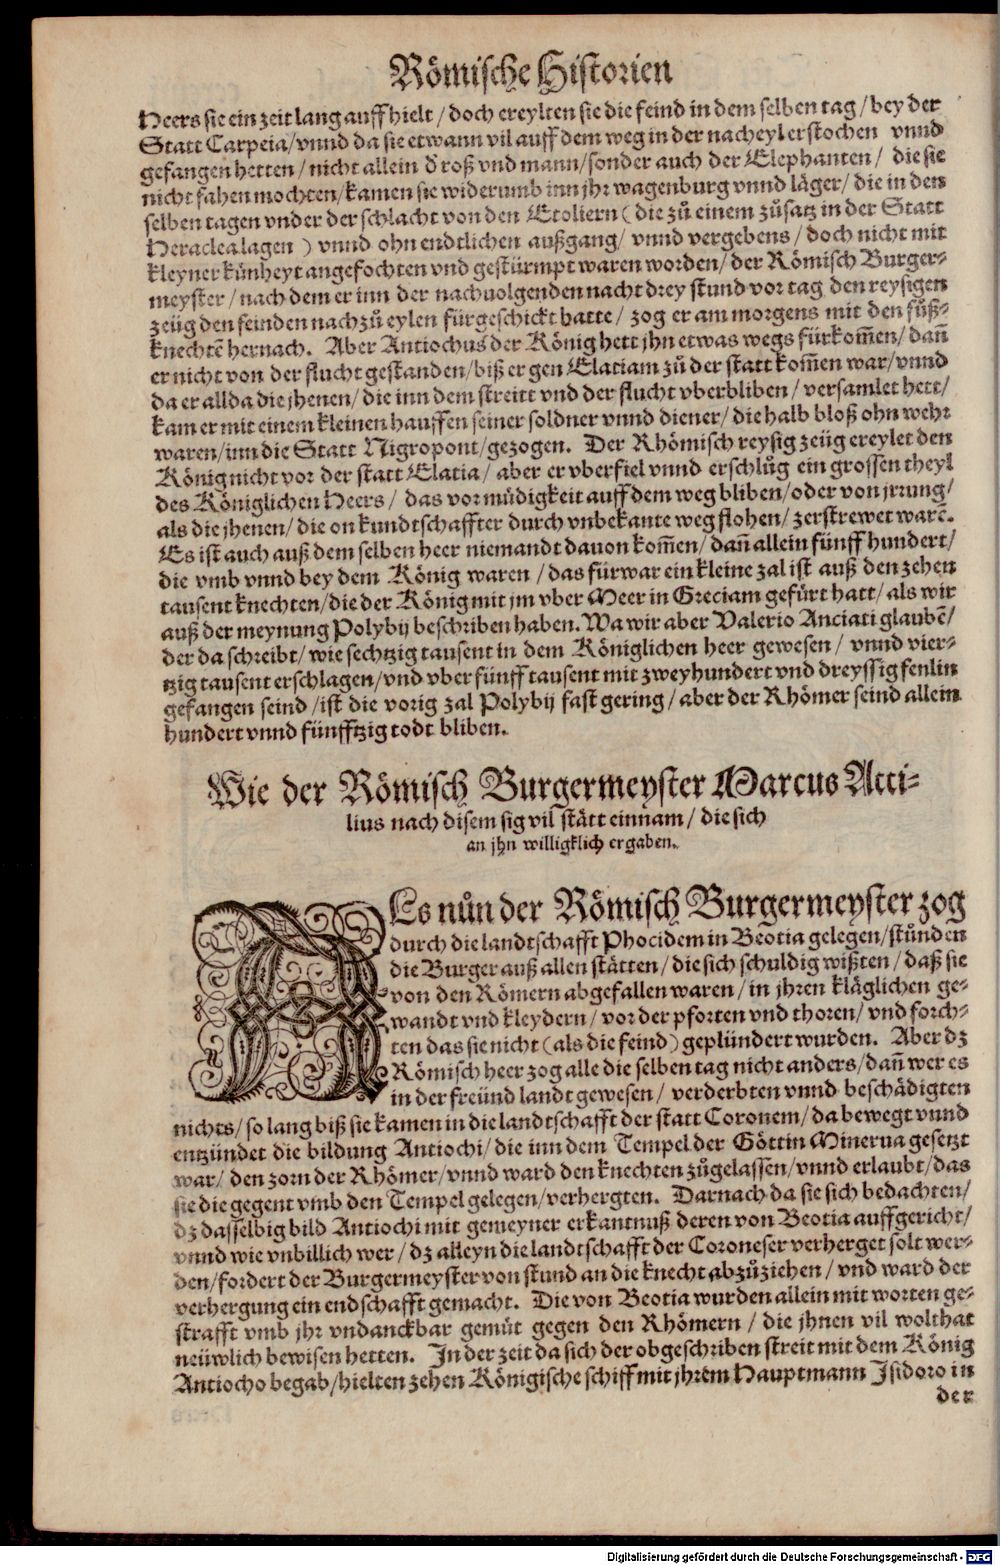 Römische Historien
Heers sie ein zeit lang auffhielt / doch ereylten sie die feind in dem selben tag / bey der
Statt Carpeia / vnnd da sie etwann vil auff dem weg in der nacheyl erstochen vnnd
gefangen hetten / nicht allein d̕ roß vnd mann / sonder auch der Elephanten / die sie
nicht fahen mochten / kamen sie widerumb inn jhr wagenburg vnnd läger / die in den
selben tagen vnder der schlacht von den Etoliern ( die zů einem zůsatz in der Statt
Heraclea lagen ) vnnd ohn endtlichen außgang / vnnd vergebens / doch nicht mit
kleyner künheyt angefochten vnd gestürmpt waren worden / der Römisch Burger-
meyster / nach dem er inn der nachuolgenden nacht drey stund vor tag den reysigen
zeüg den feinden nachzů eylen fürgeschickt hatte / zog er am morgens mit den fůß-
knechtē hernach. Aber Antiochus der König hett jhn etwas wegs fürkom̄en / dan̄
er nicht von der flucht gestanden / biß er gen Elatiam zů der statt kom̄en war / vnnd
da er allda die jhenen / die inn dem streitt vnd der flucht vberbliben / versamlet hett /
kam er mit einem kleinen hauffen seiner soldner vnnd diener / die halb bloß ohn wehr
waren / inn die Statt Nigropont / gezogen. Der Rhömisch reysig zeüg ereylet den
König nicht vor der statt Elatia / aber er vberfiel vnnd erschlůg ein grossen theyl
des Königlichen Heers / das vor müdigkeit auff dem weg bliben / oder von jrrung /
als die jhenen / die on kundtschaffter durch vnbekante weg flohen / zerstrewet warē.
Es ist auch auß dem selben heer niemandt dauon kom̄en / dan̄ allein fünff hundert /
die vmb vnnd bey dem König waren / das fürwar ein kleine zal ist auß den zehen
tausent knechten / die der König mit jm vber Meer in Greciam gefürt hatt / als wir
auß der meynung Polybij beschriben haben. Wa wir aber Valerio Anciati glaubē /
der da schreibt / wie sechtzig tausent in dem Königlichen heer gewesen / vnnd vier-
tzig tausent erschlagen / vnd vber fünff tausent mit zweyhundert vnd dreyssig fenlin
gefangen seind / ist die vorig zal Polybij fast gering / aber der Rhömer seind allein
hundert vnnd fünfftzig todt bliben.
Wie der Römisch Burgermeyster Marcus Atti-
lius nach disem sig vil stätt einnam / die sich
an jhn willigklich ergaben.
ALs nůn der Römisch Burgermeyster zog
durch die landtschafft Phocidem in Beotia gelegen / stůnden
die Burger auß allen stätten / die sich schuldig wißten / daß sie
von den Römern abgefallen waren / in jhren kläglichen ge-
wandt vnd kleydern / vor der pforten vnd thoren / vnd forch-
ten das sie nicht ( als die feind ) geplündert wurden. Aber dz
Römisch heer zog alle die selben tag nicht anders / dan̄ wer es
in der freünd landt gewesen / verderbten vnnd beschädigten
nichts / so lang biß sie kamen in die landtschafft der statt Coronem / da bewegt vnnd
entzündet die bildung Antiochi / die inn dem Tempel der Göttin Minerua gesetzt
war / den zorn der Rhömer / vnnd ward den knechten zůgelassen / vnnd erlaubt / das
sie die gegent vmb den Tempel gelegen / verhergten. Darnach da sie sich bedachten /
dz dasselbig bild Antiochi mit gemeyner erkantnuß deren von Beotia auffgericht /
vnnd wie vnbillich wer / dz alleyn die landtschafft der Coroneser verherget solt wer-
den / fordert der Burgermeyster von stund an die knecht abzůziehen / vnd ward der
verhergung ein endschafft gemacht. Die von Beotia wurden allein mit worten ge-
strafft vmb jhr vndanckbar gemüt gegen den Rhömern / die jhnen vil wolthat
neüwlich bewisen hetten. In der zeit da sich der obgeschriben streit mit dem König
Antiocho begab / hielten zehen Königische schiff mit jhrem Hauptmann Isidoro in
der
Digitalisierung gefördert durch die Deutsche Forschungsgemeinschaft - DFG